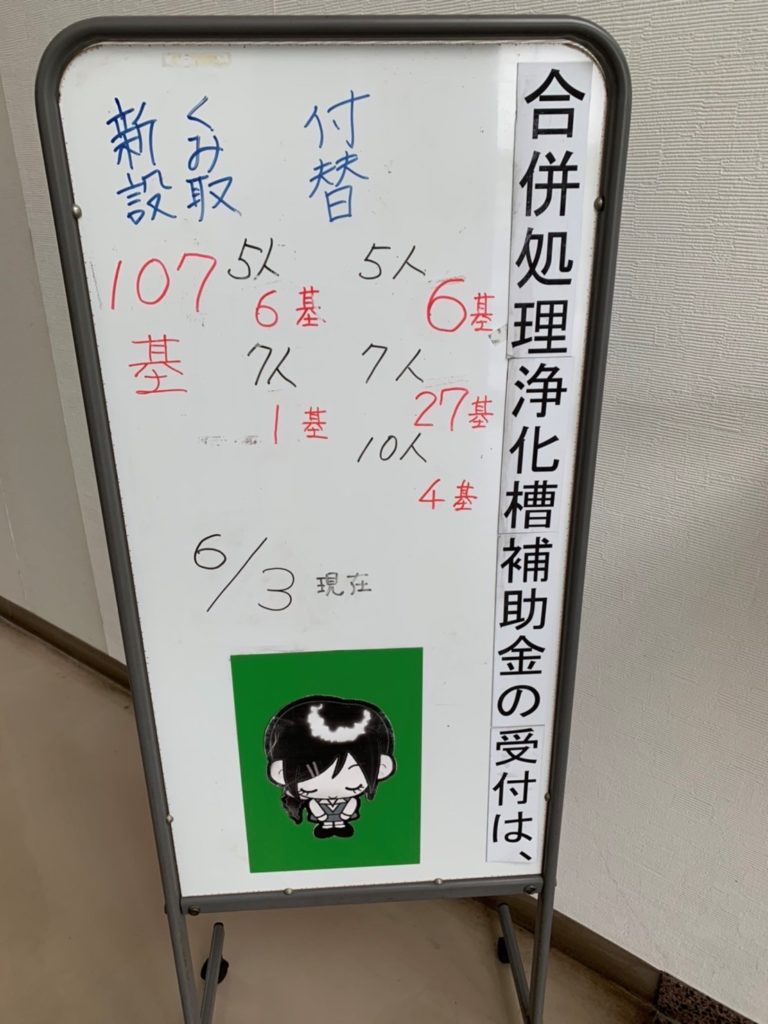 合併処理浄化槽補助金の受付は、
付替
5人
6基
7人
27基
10人
4基
くみ取
5人
6基
7人
1基
新設
107
基
6/3 現在